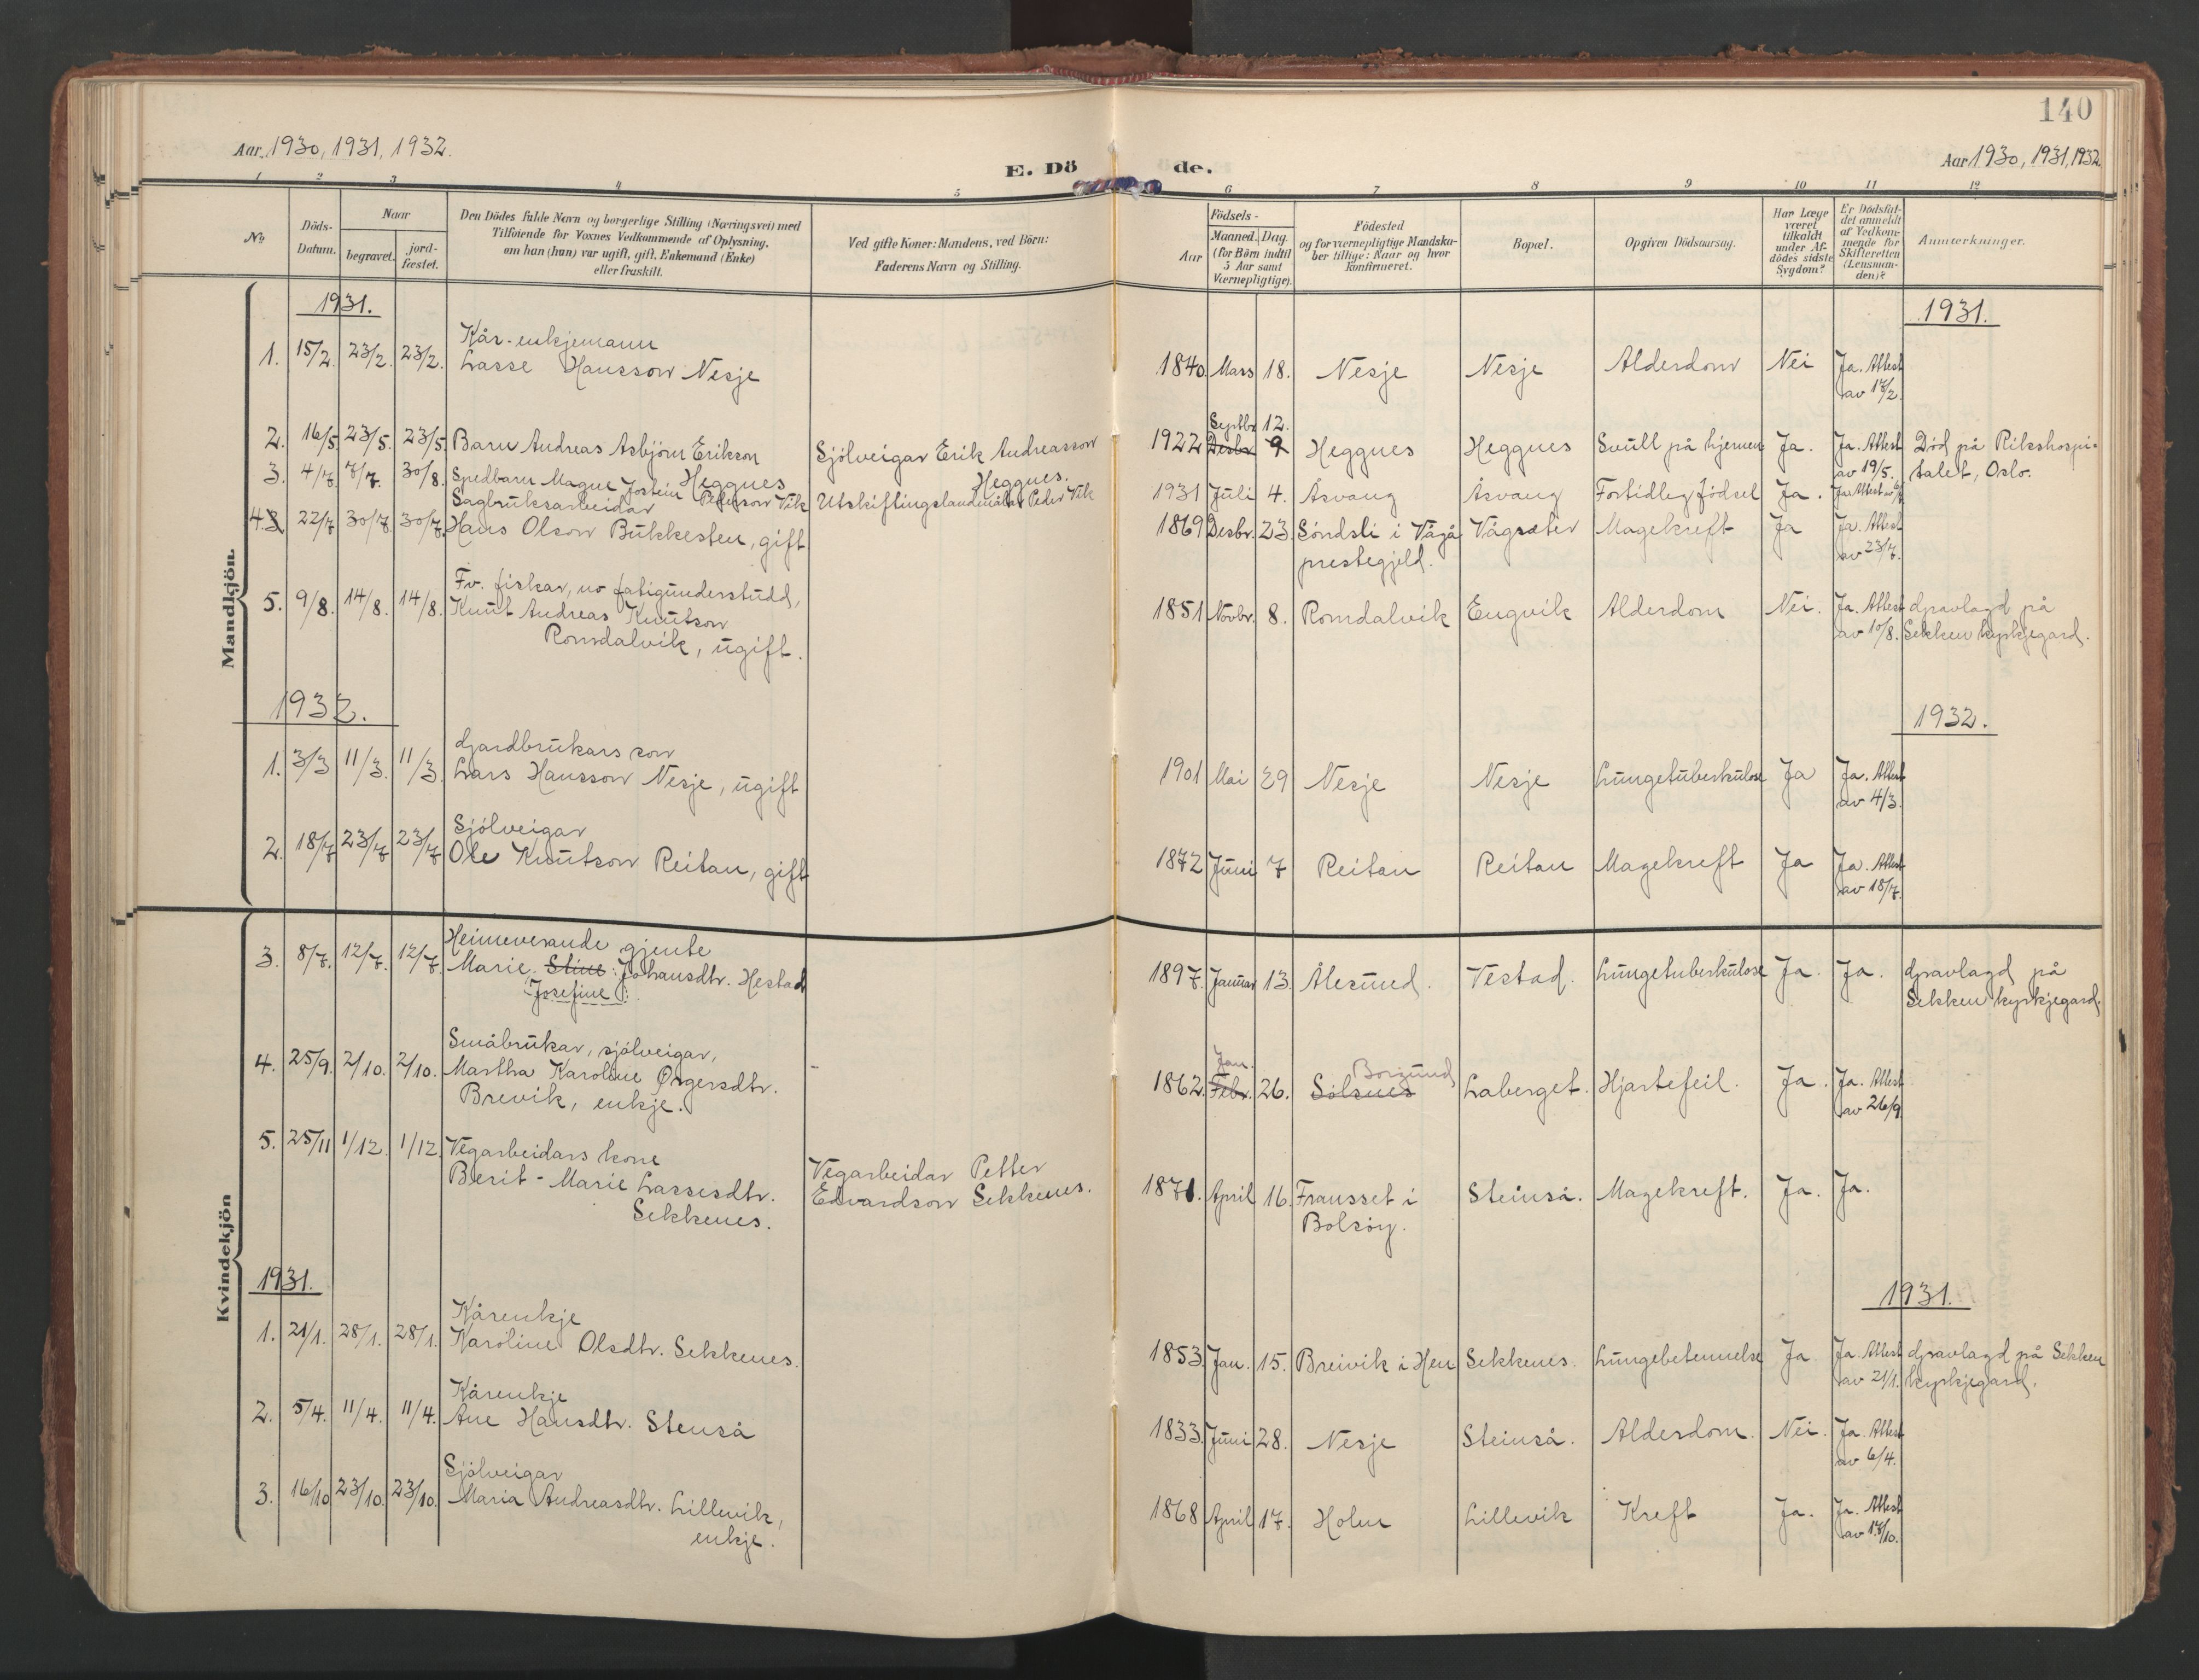 140
Aar 1930, 1931, 1932.
E. Dö de.
Aar 1930, 1931, 1932
1 2 3 4 5 6 7 8 9 10 11 12
No.
Döds-Datum.
Naar
begravet.
jord-fæstet.
Den Dödes fulde Navn og borgerlige Stilling (Næringsvei) med
Tilföiende for Voxnes Vedkommende af Oplysning,
om han (hun) var ugift, gift, Enkemand (Enke)
eller fraskilt.
Ved gifte Koner: Mandens, ved Börn:
Faderens Navn og Stilling.
Födsels-
Aar
Maaned. Dag.
(for Börn indtil
5 Aar samt
Værnepligtige).
Födested
og for værnepligtige Mandska-
ber tillige: Naar og hvor
konfirmeret.
Bopæl.
Opgiven Dödsaarsag.
Har Læge
været
tilkaldt
under Af-
dödes sidste
Sygdom?
Er Dödsfal-
det anmeldt
af Vedkom-
mende for
Skifteretten
(Lensman-
den)?
Anmærkninger.
Mandkjön.
1931. 1931.
Kår-enkjemann
1. 15/2. 23/2. 23/2. Lasse Hansson Nesje 1840. Mars 18. Nesje Nesje Alderdom Nei Ja. Attest
av 17/2.
Septbr 12.
2. 16/5. 23/5. 23/5. Barn Andreas Asbjörn Erikson Sjölveigar Erik Andreasson 1922 Desbr 9 Heggnes Heggnes Svull på hjernen Ja. Ja. Attest Död på Rikshospi-
Heggnes Heggnes. av 19/5. talet, Oslo.
3. 4/7. 7/7. 30/8. Spedbarn Magne Jostein Pederson Vik Utskiftingslandmålar Peder Vik 1931 Juli 4. Åsvang Åsvang Fortidleg födsel Ja. Ja. Attest
Sagbruksarbeidar
4. 3 22/7 30/7 30/7. Hans Olson Bukkesten, gift 1869 Desbr. 23. Söndsli i Vågå Vågsæter Magekreft Ja Ja. Attest
prestegjeld. av 23/7.
Fv. fiskar, no fatigunderstudd,
5. 9/8. 14/8. 14/8. Knut Andreas Knutson 1851 Novbr. 8. Romdalvik Engvik Alderdom Nei. Ja. Attest Gravlagd på
Romdalvik, ugift. av 10/8. Sekken kyrkjegard.
1932. 1932.
Gardbrukars son
1. 3/3 11/3. 11/3. Lars Hansson Nesje, ugift 1901 Mai 29 Nesje Nesje Lungetuberkulose Ja Ja. Attest
av 4/3.
Sjölveigar
2. 18/7 23/7 23/7 Ole Knutson Reitan, gift 1872 Juni 7 Reitan Reitan Magekreft Ja Ja. Attest
av 18/7.
Kvindekjön
Heimeverande gjente
3. 8/7. 12/7. 12/7. Marie Stine Johansdtr. Hestad 1897. Januar 13. Ålesund. Vestad. Lungetuberkulose Ja. Ja. Gravlagd på
Josefine Sekken kyrkjegard.
Småbrukar, sjölveigar, Jan. Borgund
4. 25/9. 2/10. 2/10. Martha Karoline Örgersdtr. - 1862. Febr. 26. Sölsnes Laberget. Hjartefeil. Ja. Ja. Attest
Brevik, enkje. av 26/9
5. 25/11 1/12. 1/12. Vegarbeidars kone Vegarbeidar Petter
Berit-Marie Lassesdtr. Edvardson Sekkenes. 1871. April 16. Fransset i Steinså. Magekreft. Ja. Ja.
Sekkenes. Bolsöy.
1931. 1931.
Kårenkje
1. 21/1. 28/1. 28/1. Karoline Olsdtr. Sekkenes. 1853. Jan. 15. Breivik i Hen Sekkenes. Lungebetennelse Ja Ja. Attest Gravlagd på Sekken
av 21/1. kyrkjegard.
Kårenkje
2. 5/4. 11/4. 11/4. Ane Hansdtr. Stenså 1833. Juni 28. Nesje Steinså. Alderdom. Nei. Ja. Attest
av 6/4.
Sjölveigar
3. 16/10 23/10. 23/10. Maria Andreasdtr. Lillevik, 1868 April 17. Holm Lillevik Kreft Ja. Ja. Attest
enkje. av 17/10.